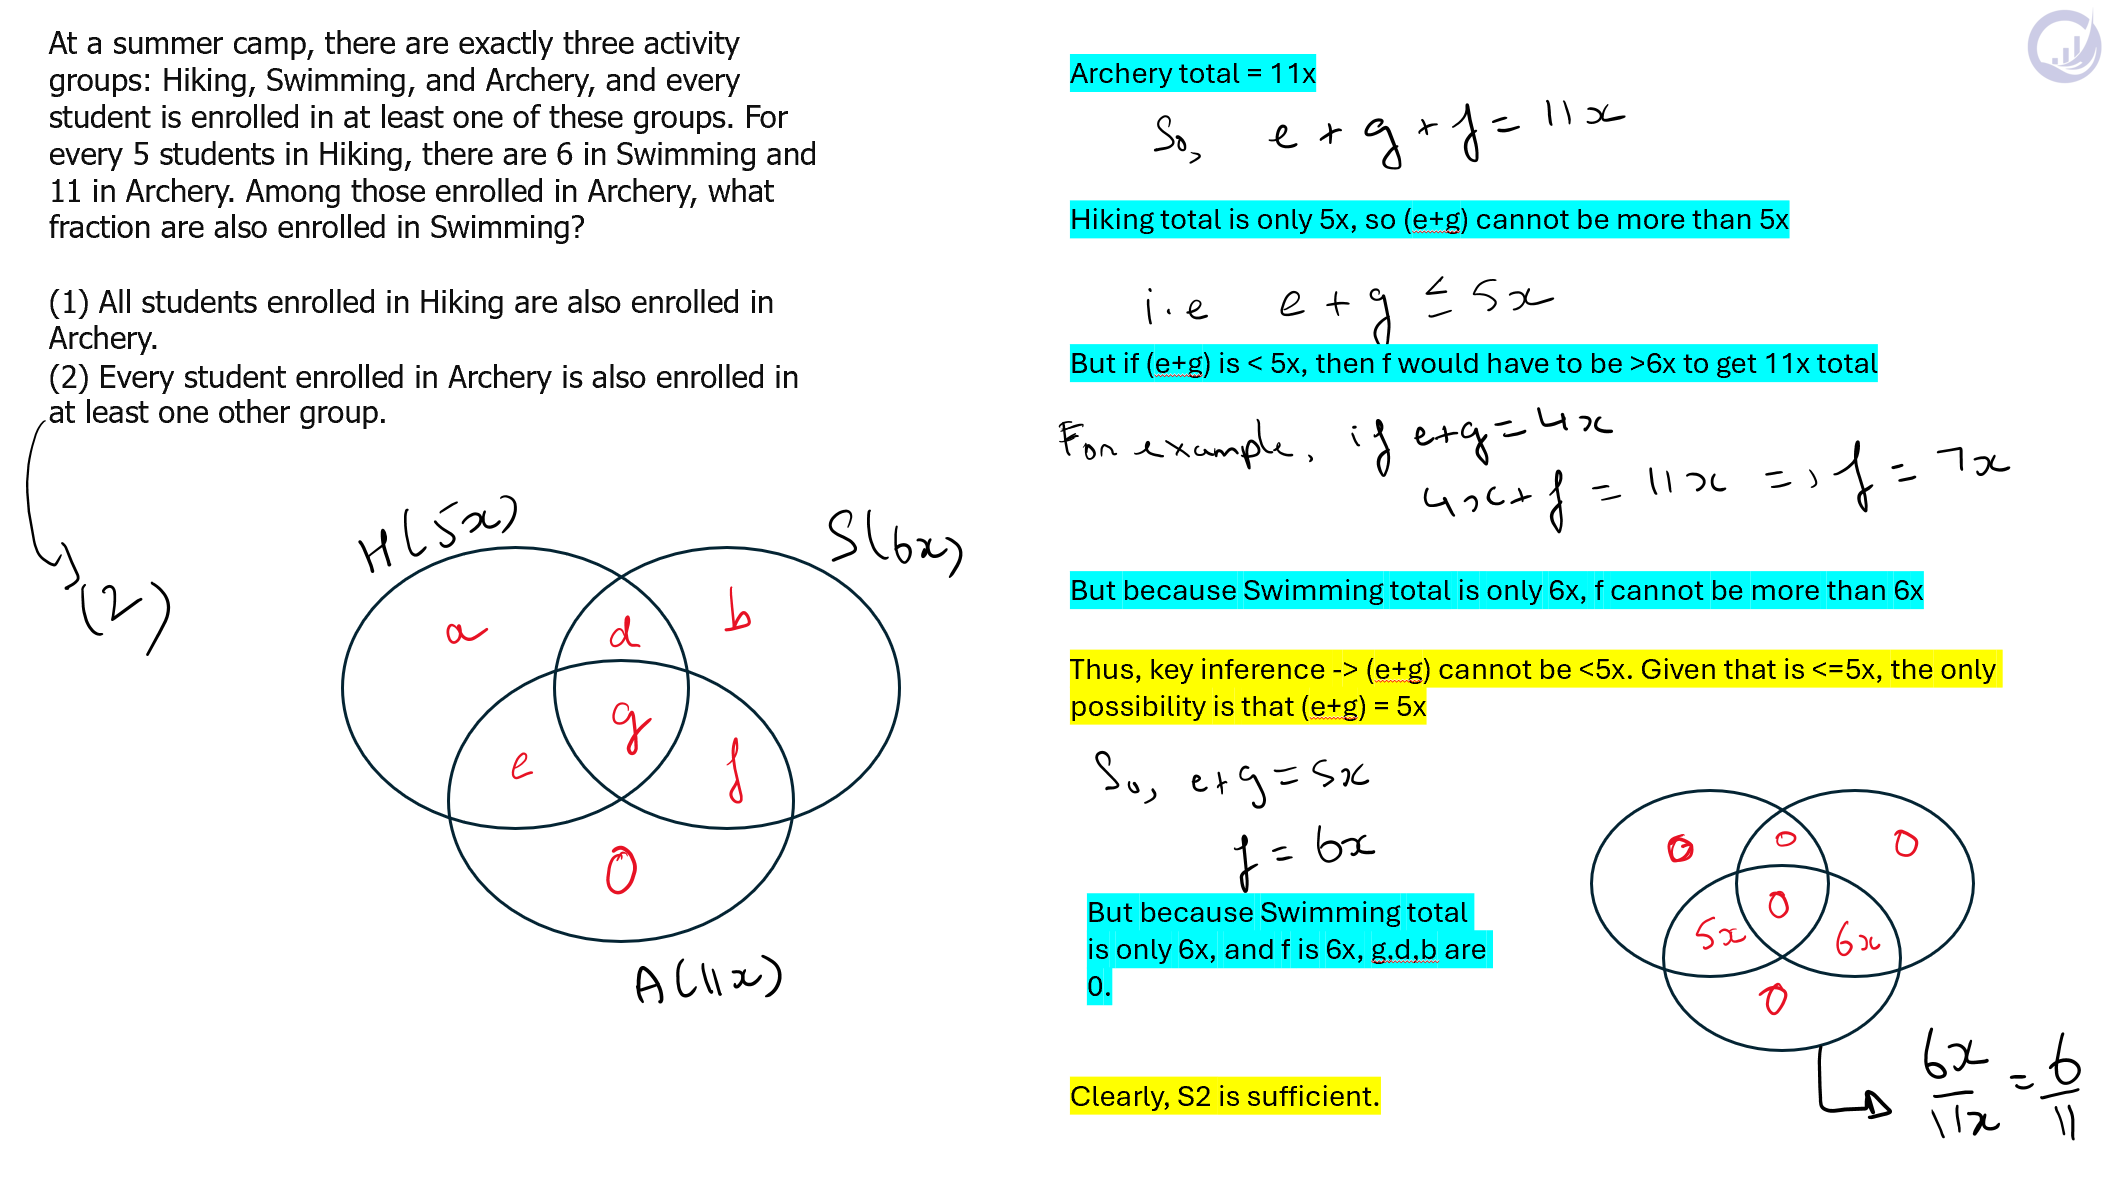 At a summer camp, there are exactly three activity
groups: Hiking, Swimming, and Archery, and every
student is enrolled in at least one of these groups. For
every 5 students in Hiking, there are 6 in Swimming and
11 in Archery. Among those enrolled in Archery, what
fraction are also enrolled in Swimming?
(1) All students enrolled in Hiking are also enrolled in
Archery.
(2) Every student enrolled in Archery is also enrolled in
at least one other group.
(2)
H(5x)
S(6x)
a
d
b
g
e
f
0
A(11x)
Archery total = 11x
So, e + g + f = 11x
Hiking total is only 5x, so (e+g) cannot be more than 5x
i.e e + g ≤ 5x
But if (e+g) is < 5x, then f would have to be >6x to get 11x total
For example, if e+g = 4x
4x + f = 11x => f = 7x
But because Swimming total is only 6x, f cannot be more than 6x
Thus, key inference -> (e+g) cannot be <5x. Given that is <=5x, the only
possibility is that (e+g) = 5x
So, e+g = 5x
f = 6x
But because Swimming total
is only 6x, and f is 6x, g,d,b are
0.
0
0
0
0
5x
6x
0
6x/11x = 6/11
Clearly, S2 is sufficient.